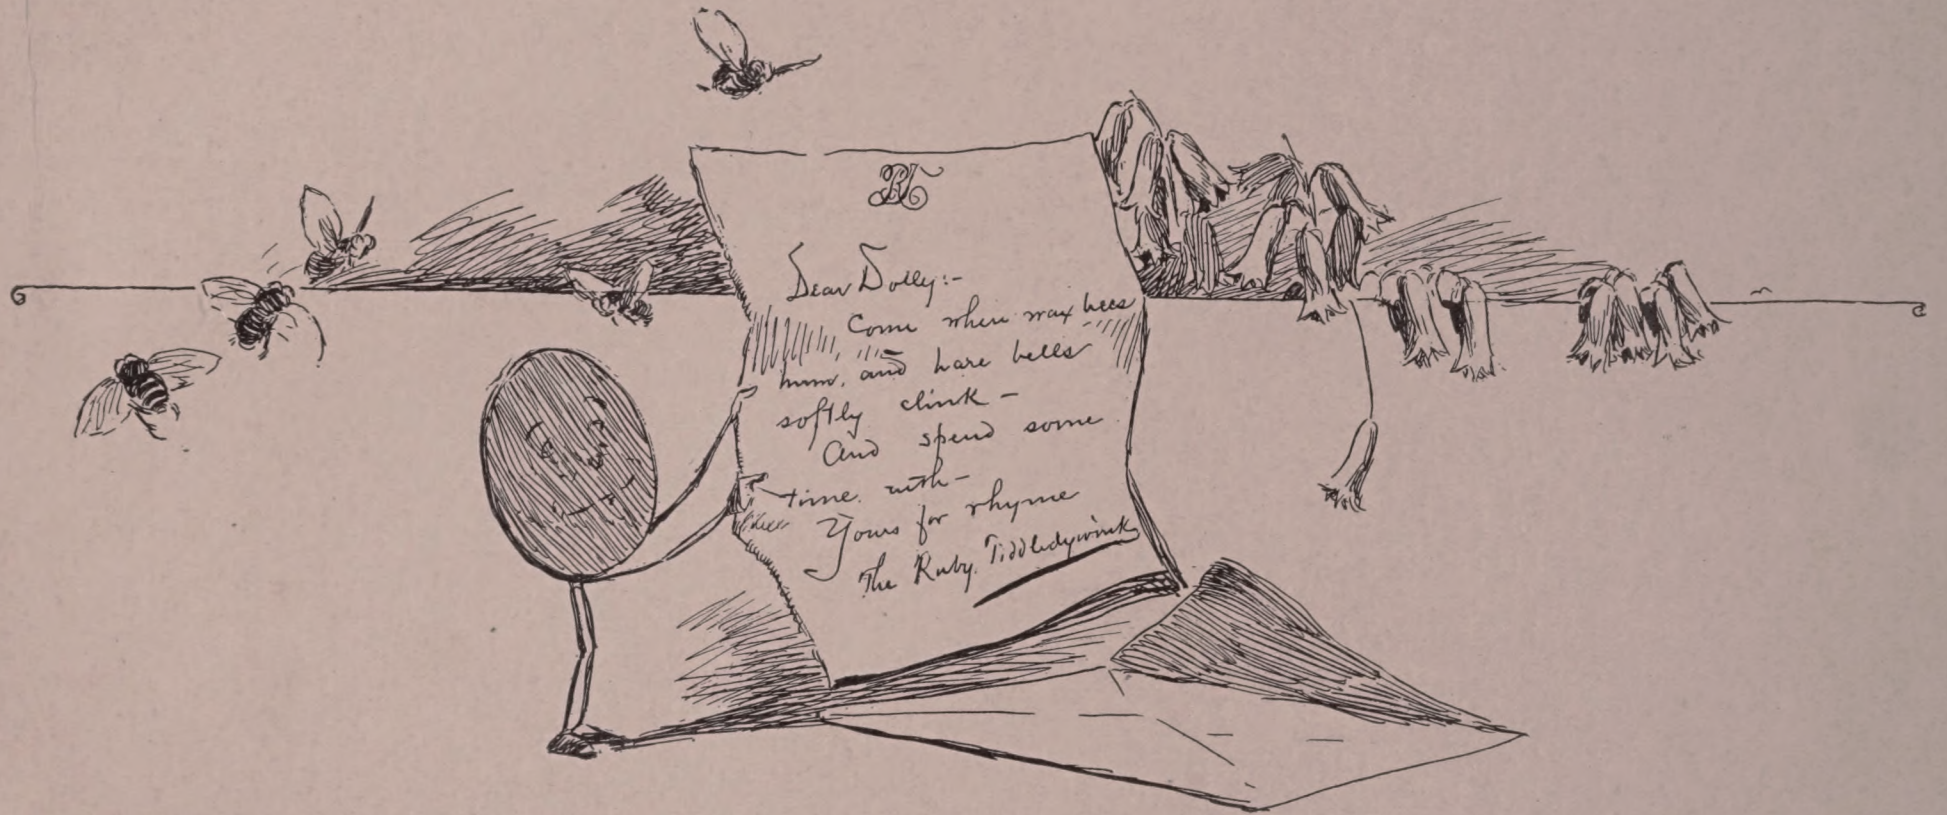 RT
Dear Dolly:-
Come where wax bees
hum, and hare bells
softly clink -
And spend some
time with -
Yours for rhyme
The Ruby Tiddledywink